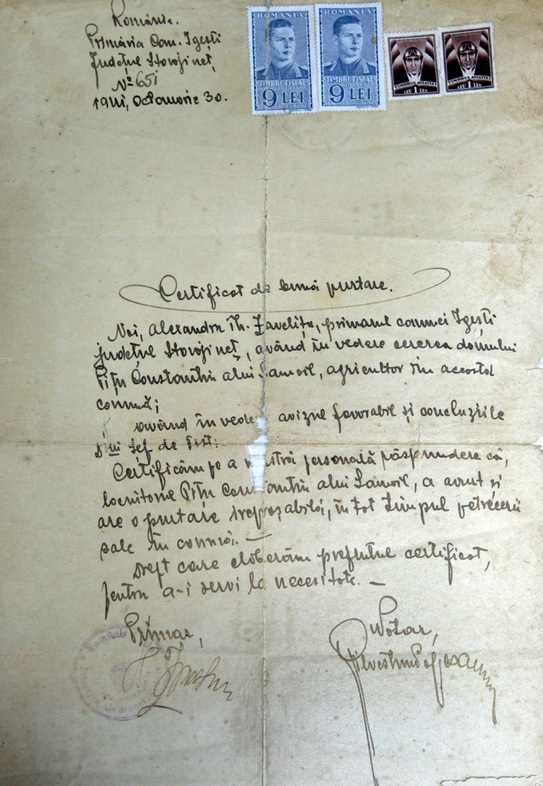 România.
Primăria Com. Igești
Județul Storojineț
No 651
1941, Octomvrie 30.
ROMANIA
TIMBRU FISCAL
9 LEI
ROMANIA
TIMBRU FISCAL
9 LEI
1 LEU
1 LEU
Certificat de bună purtare.
Noi, Alexandru Th. Zavelițu, primarul comunei Igești
județul Storojineț, având în vedere cererea domnului
Pițu Constantin a lui Samoil, agricultor din această
comună;
având în vedere avizul favorabil și concluziile
Șef de Post:
Certificăm pe a noastră personală răspundere că,
locuitorul Pițu Constantin a lui Samoil, a avut și
are o purtare ireproșabilă, în tot timpul petrecerii
sale în comună. —
Drept care eliberăm prezentul certificat,
pentru a-i servi la necesitate. —
Primar,
Notar,